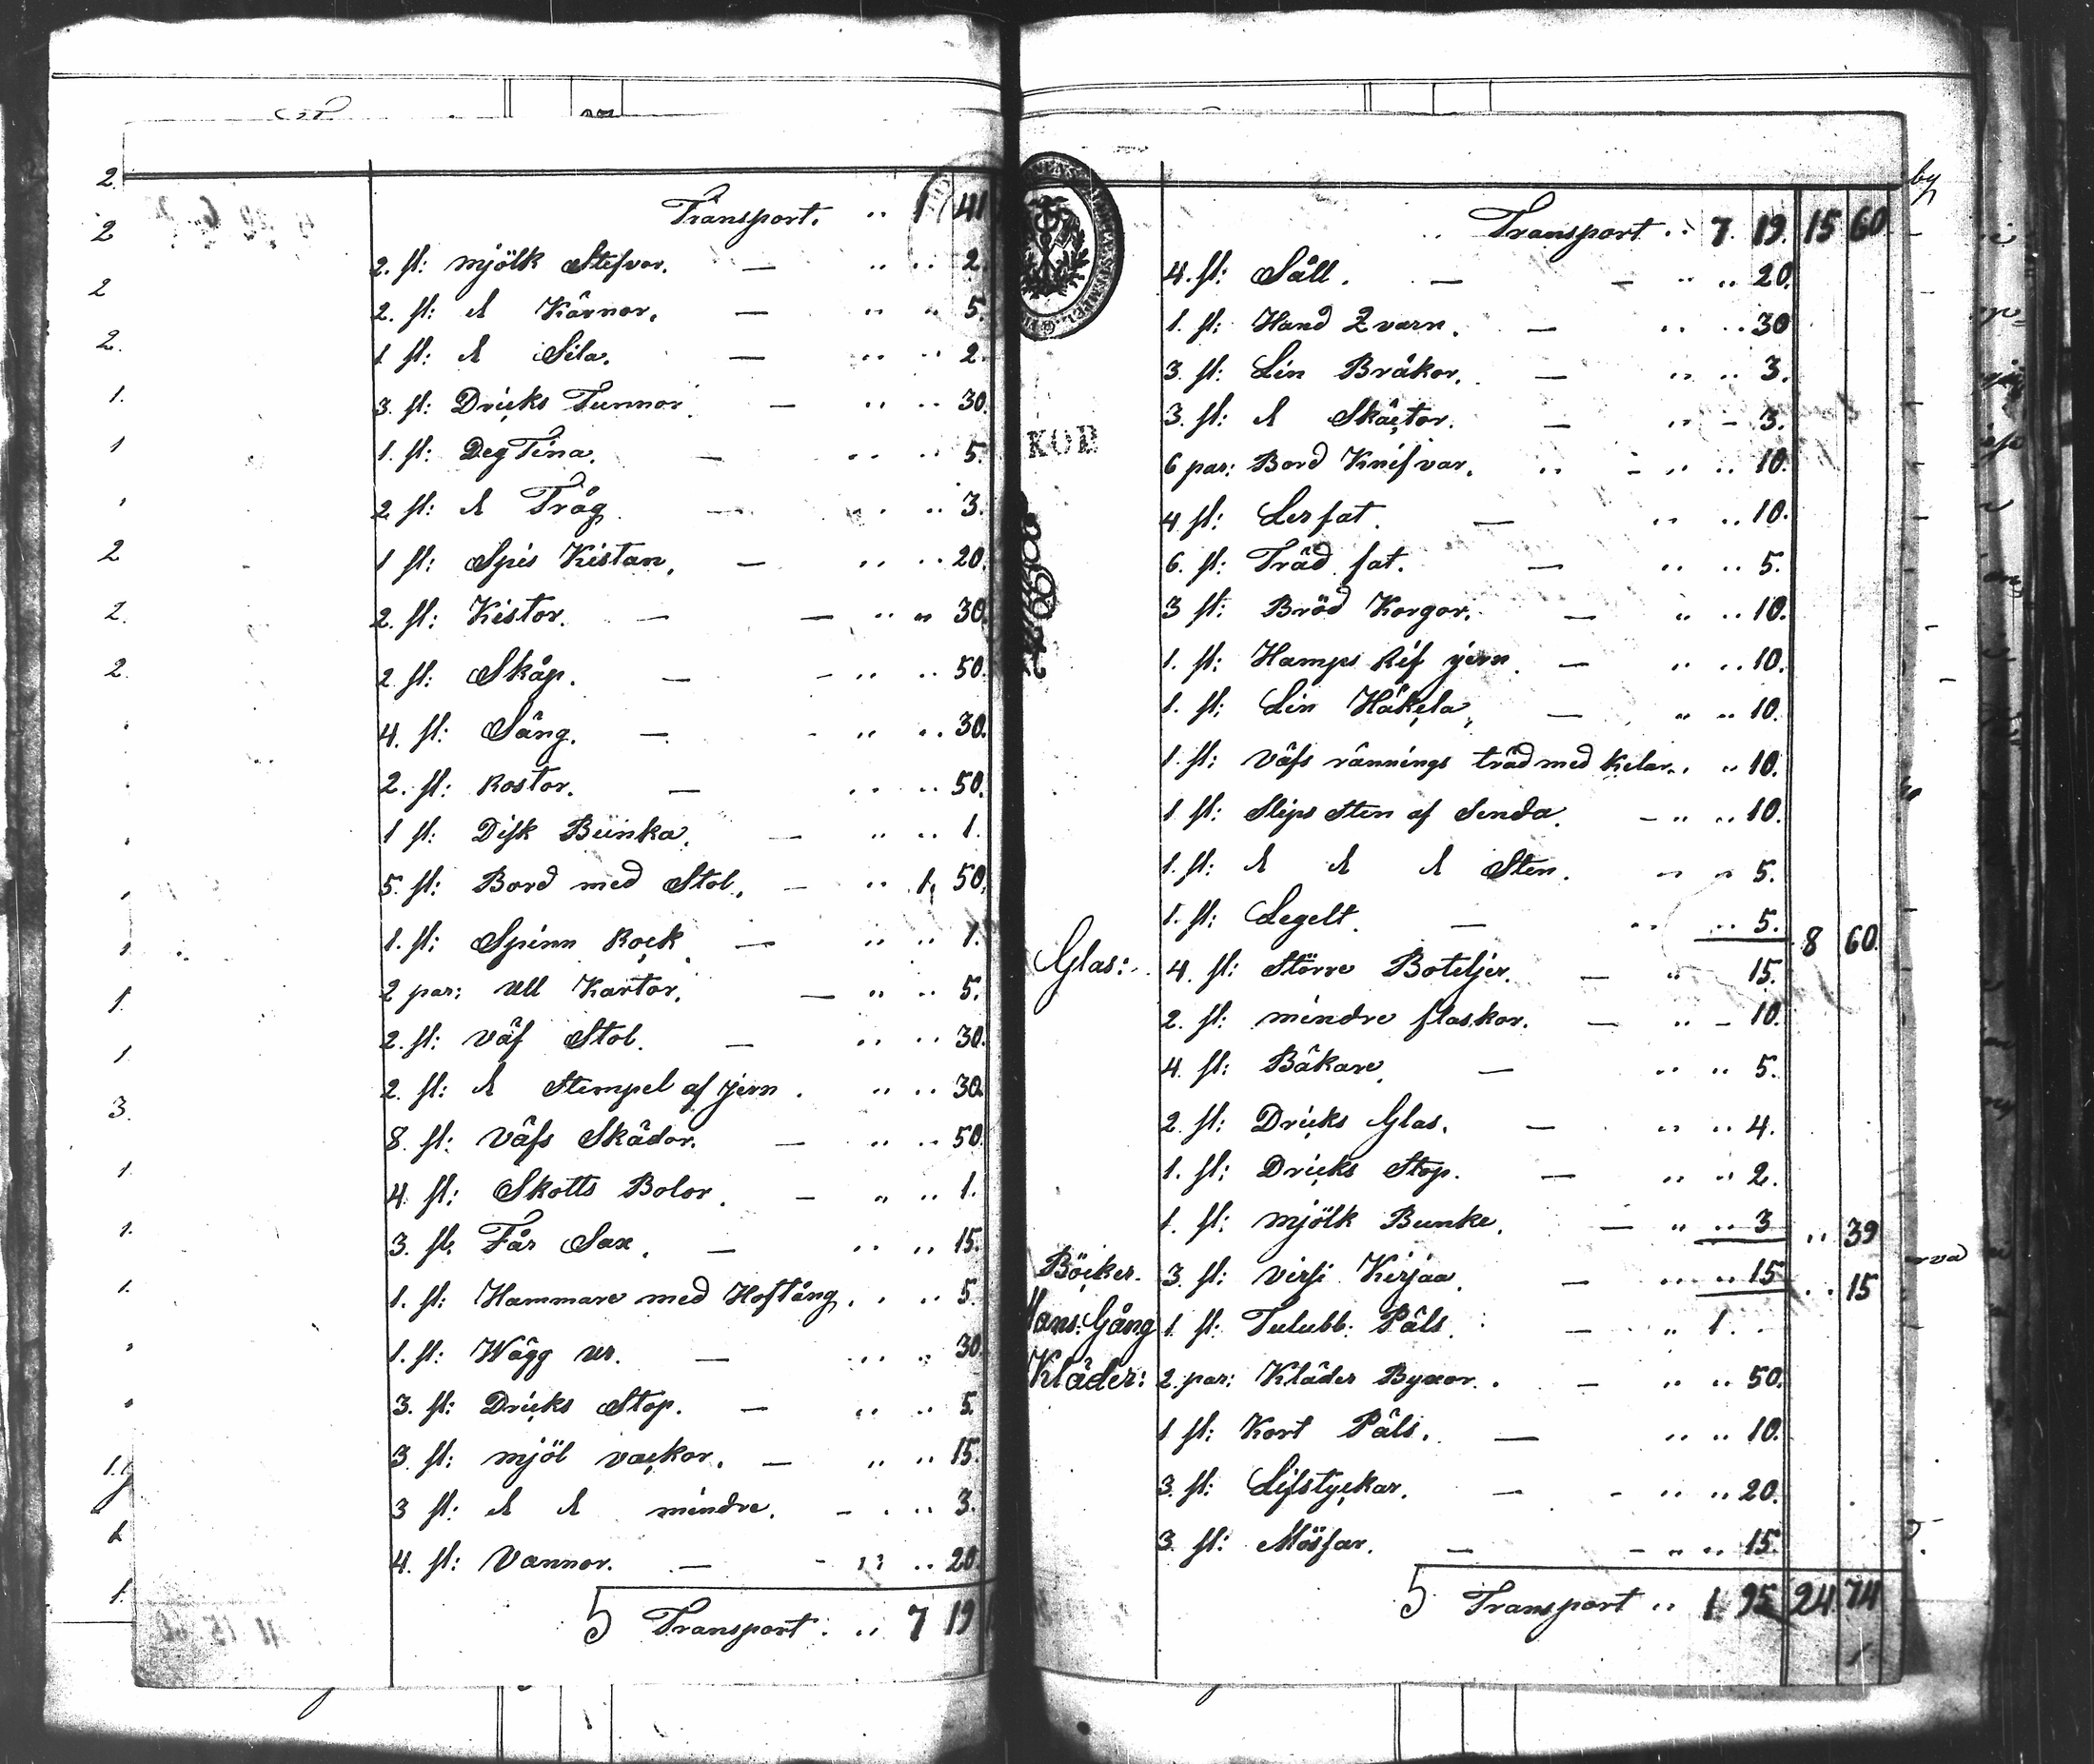 Transport. .. 1 41
2. st: mjölk Stefvor. — .. .. 2.
2. st: d Kärnor. — .. .. 5.
1 st: d Sila. — .. .. 2.
3. st: Dricks Tunnor. — .. .. 30.
1. st: Deg Tina. — .. .. 5.
2 st: d Tråg. — .. .. 3.
1 st: Spis Kistan. — .. .. 20.
2. st: Kistor. — — .. .. 30.
2. st: Skåp. — - .. .. 50.
4. st: Säng. — - .. .. 30.
2. st: Rostor. — .. .. 50.
1 st: Disk Bunka. — .. .. 1.
5. st: Bord med Stol. — .. 1, 50.
1. st: Spinn Rock — .. .. 1.
2 par: Ull Kartor. — .. .. 5.
2. st: Väf Stol. — .. .. 30.
2. st: d Stempel af jern . .. .. 30.
8. st: Väfs Skädor. — .. .. 50.
4. st: Skotts Bolor. — .. .. 1.
3. st. Får Sax. — .. .. 15.
1. st: Hammare med Hoftång. . . .. 5.
1. st: Wägg Ur. — .. .. 30.
3. st: Dricks Stop. — .. .. 5.
3. st: mjöl vackor. — .. .. 15.
3 st: d d mindre. - . .. 3.
4. st: Vannor. — - .. .. 20
5 Transport. .. 7 19
Transport .. 7. 19. 15 60
4. st: Såll. — — .. .. 20.
1. st: Hand Qvarn. — .. .. 30
3. st: Lin Bråkor. — .. .. 3.
3. st: d Skäctor. — .. - 3.
KOP
6 par: Bord Knifvar. .. - .. .. 10.
4 st: Lerfat. — .. .. 10.
6. st: Träd fat. — .. .. 5.
3 st: Bröd Korgor. — .. .. 10.
1. st: Hamps Rif jern. — .. .. 10.
1. st: Lin Häkcla, — .. .. 10.
1. st: Väfs rännings träd med Kelar. . .. 10.
1 st: Slips Sten af Senda. - .. .. 10.
1. st: d d d Sten. .. .. 5.
1. st: Legelt. — .. .. 5. 8 60.
Glas: 4. st: Större Boteljer. — .. 15.
2. st: mindre flaskor. — .. - 10.
4. st: Bäkare. — .. .. 5.
2. st: Dricks Glas. — .. .. 4.
1. st: Dricks Stop. — .. .. 2.
1. st: mjölk Bunke. — .. .. 3 .. 39
Böcker. 3. st: virsi Kirjaa. — .. .. 15 .. 15
Mans: Gång 1. st: Tulubb: Päls. — .. 1. -
Kläder: 2. par: Kläder Byxor. . — .. .. 50.
1 st: Kort Päls. — .. .. 10.
3. st: Lifstyckar. — - .. .. 20.
3. st: Mössar. — - .. .. 15.
5 Transport .. 1. 95 24. 74